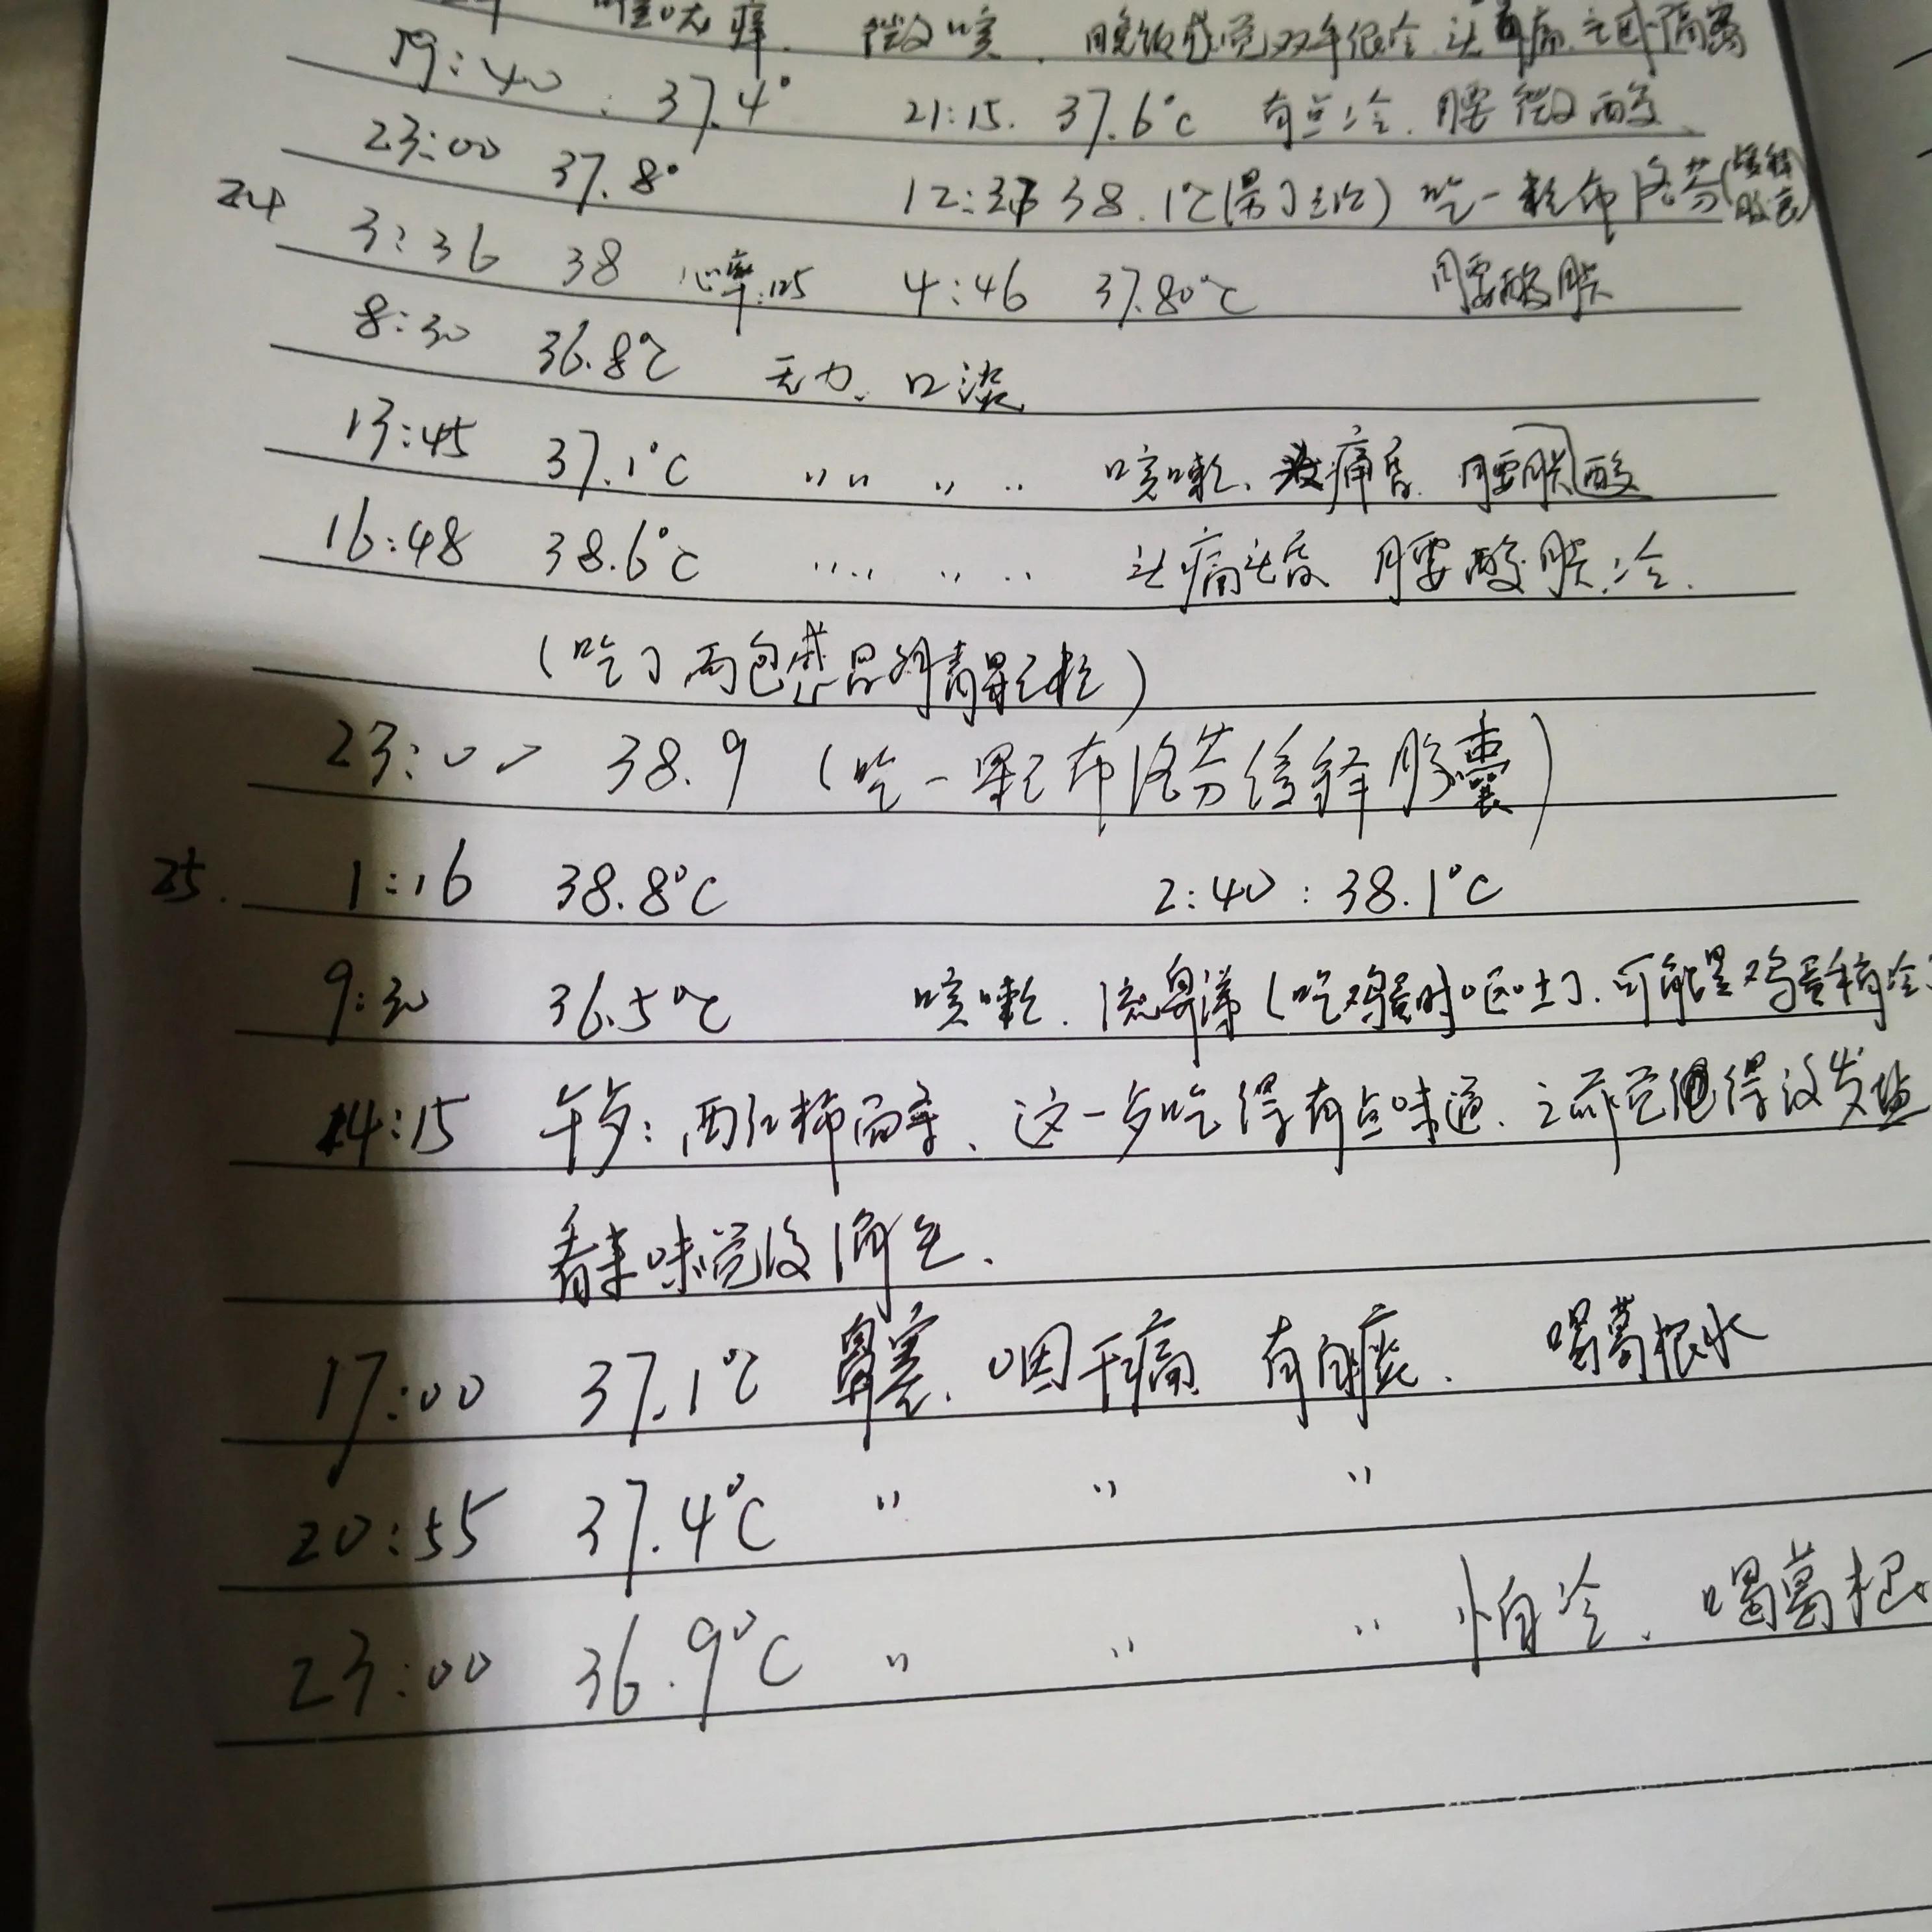 喉咙痒. 微咳. 晚饭感觉双手很冷.头有痛.
19:40 : 37.4° 21:15. 37.6℃ 有点冷. 腰微酸.
23:00 37.8° 12:37 38.1℃ 吃一粒布洛芬(缓释胶囊)
24 3:36 38 心率:125 4:46 37.80℃ 腰酸胀
8:30 36.8℃ 无力. 口淡
13:45 37.1℃ 〃〃 〃 〃 咳嗽. 头痛昏. 腰胀酸
16:48 38.6℃ 〃〃 〃 〃 头痛头昏 腰酸胀.冷.
(吃了两包感冒清颗粒)
23:00 38.9 (吃一颗布洛芬缓释胶囊)
25. 1:16 38.8℃ 2:40 : 38.1℃
9:30 36.5℃ 咳嗽. 流鼻涕(吃鸡蛋时呕吐了.可能是鸡蛋稍冷
14:15 午歺: 西红柿面条、这一歺吃得有点味道.之前觉得没发盐
看来味觉没消失.
17:00 37.1℃ 鼻塞. 咽干痛 有白痰. 喝葛根水
20:55 37.4℃ 〃 〃 〃
23:00 36.9℃ 〃 〃 〃 怕冷. 喝葛根